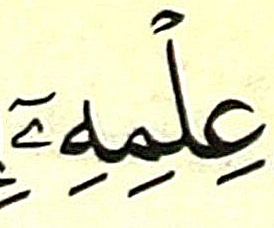 عِلْمِهِۦٓ